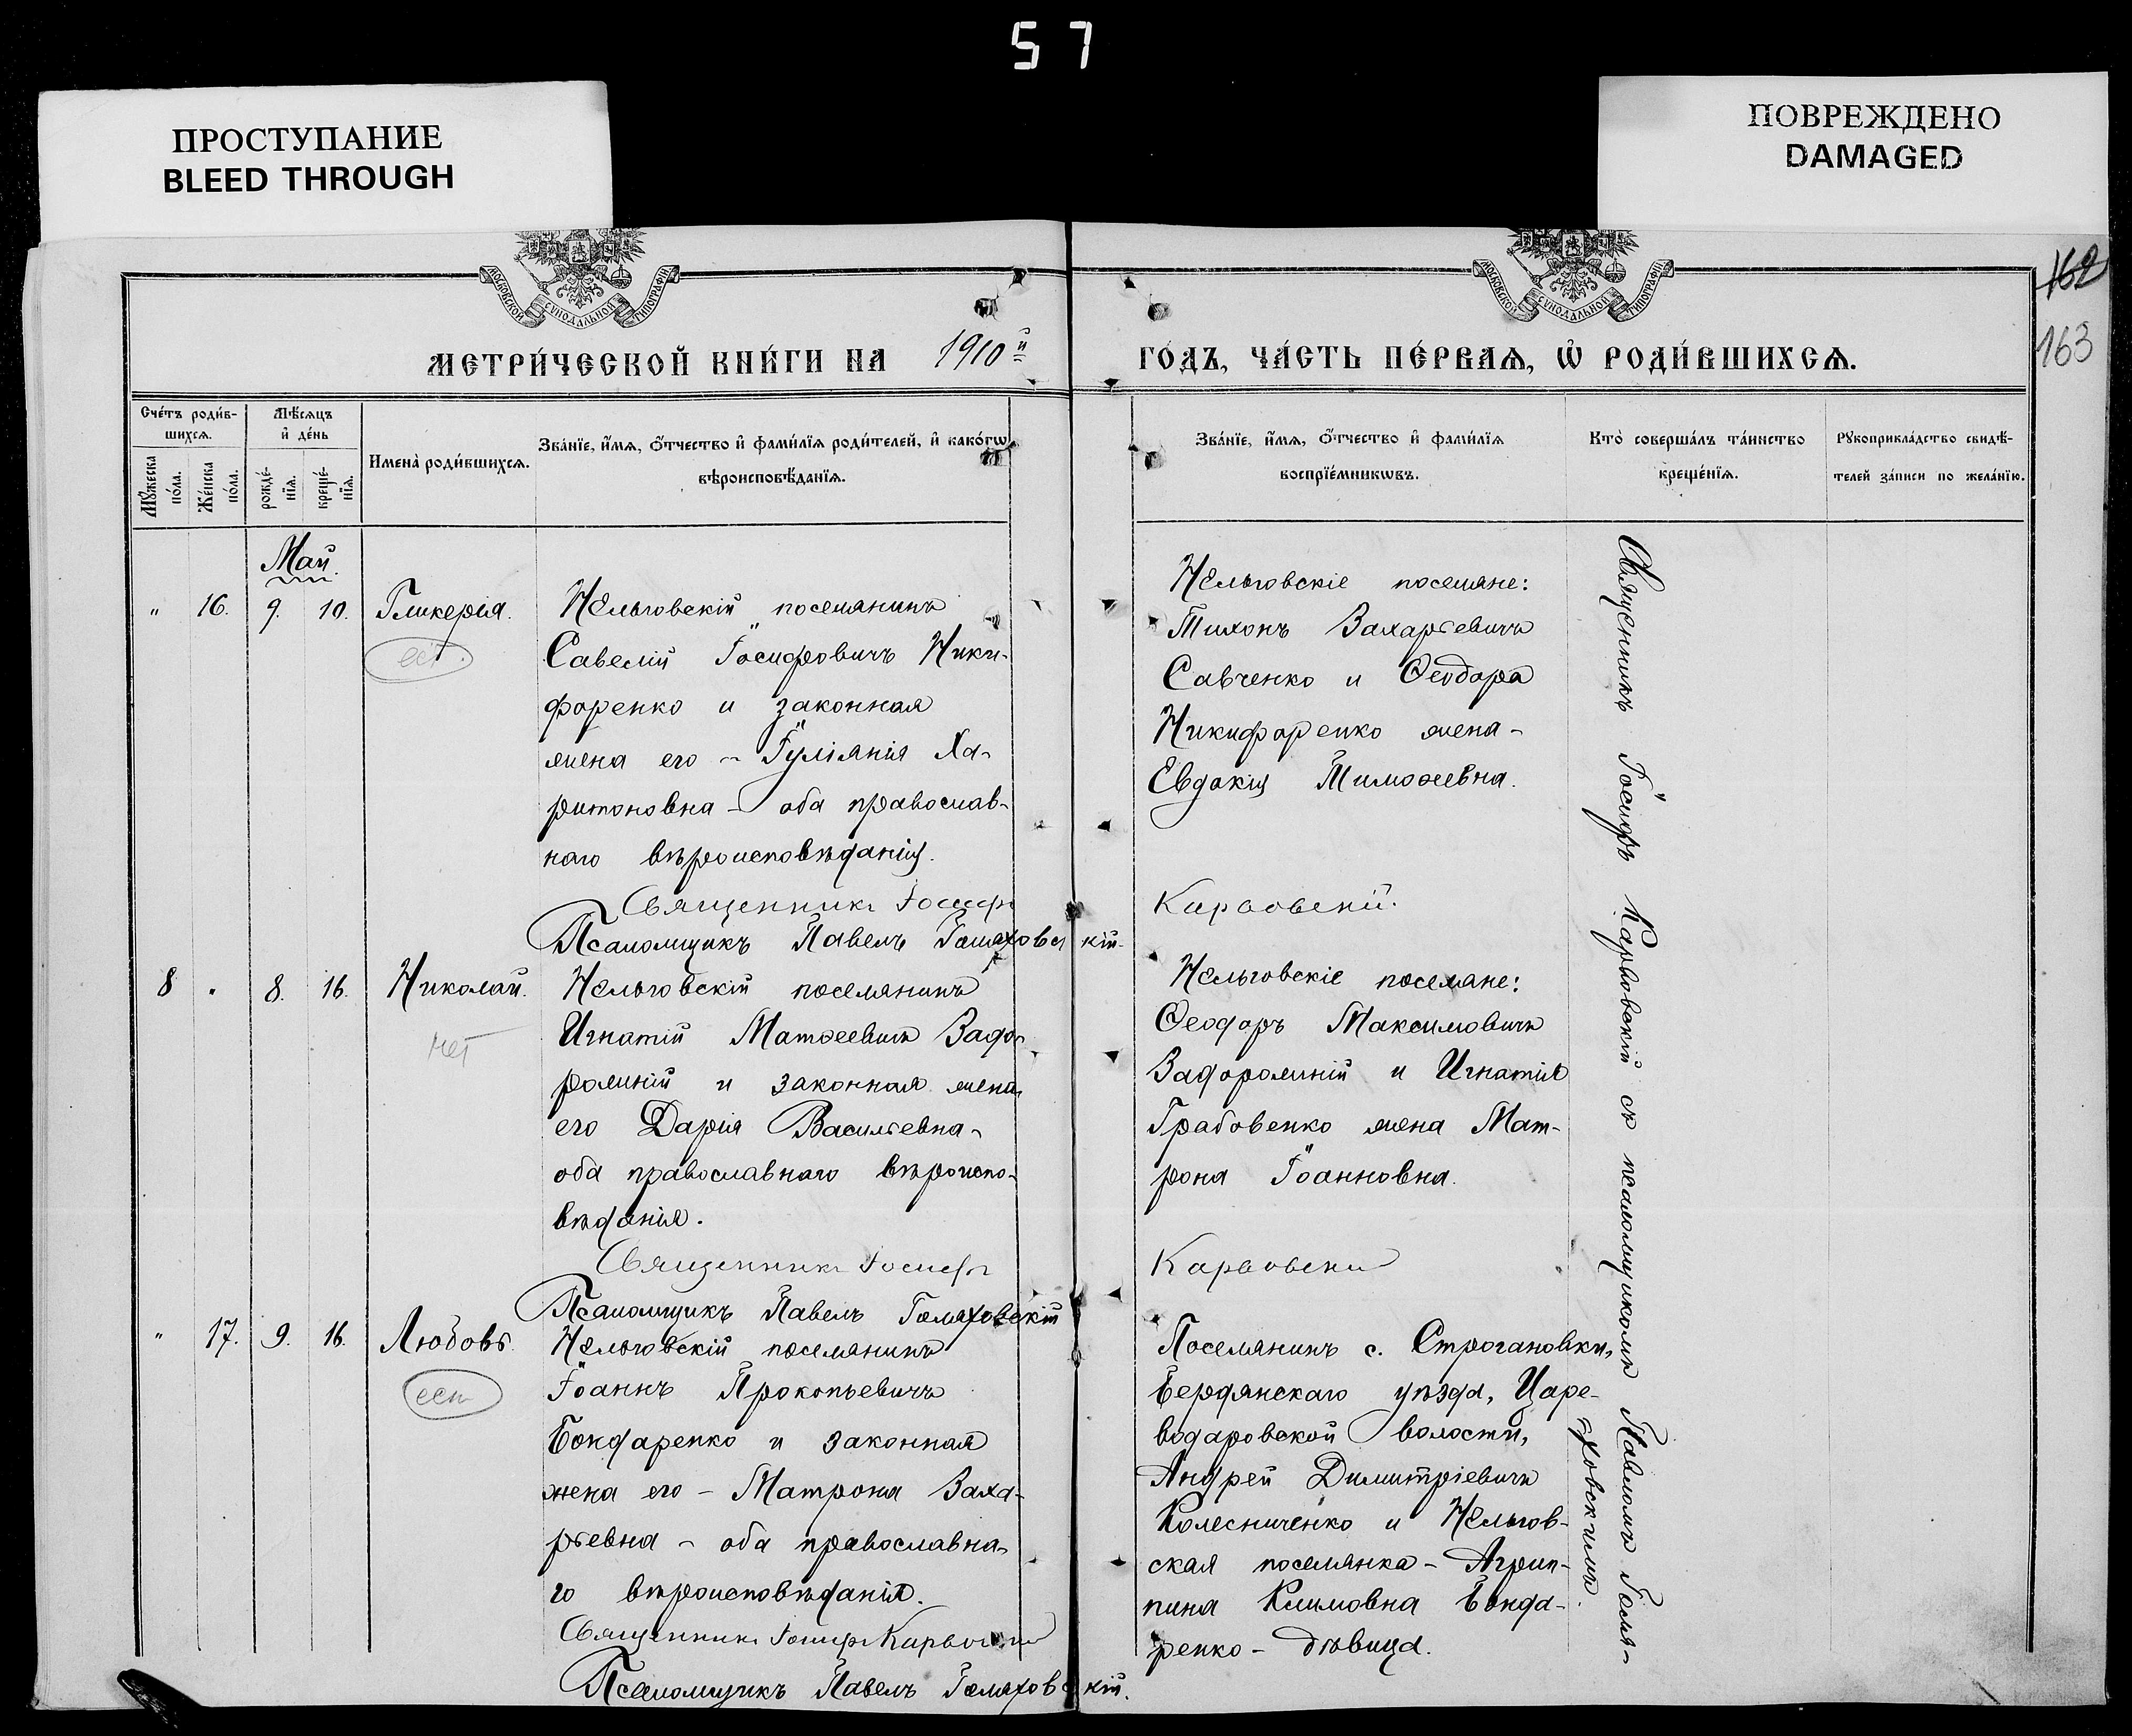 57
ПРОСТУПАНИЕ
BLEED THROUGH
ПОВРЕЖДЕНО
DAMAGED
МОСКОВСКОЙ СѴНОДАЛЬНОЙ ТИПОГРАФІИ
МОСКОВСКОЙ СѴНОДАЛЬНОЙ ТИПОГРАФІИ
162
163
МЕТРИ́ЧЕСКОЙ КНИ́ГИ НА 1910й
ГО́ДЪ, ЧА́СТЬ ПЕ́РВАѦ, Ѡ҆ РОДИ́ВШИХСѦ.
Сче́тъ роди́в-
шихсѧ.
Мꙋ́жеска
по́ла.
Же́нска
по́ла.
Мѣ́сѧцъ
и҆ де́нь
рожде́-
нїѧ.
креще́-
нїѧ.
Имена̀ роди́вшихсѧ.
Зва́нїе, и҆́мѧ, ѻ҆́тчество и҆ фами́лїѧ роди́телей, и҆ како́гѡ
вѣроисповѣ́данїѧ.
Зва́нїе, и҆́мѧ, ѻ҆́тчество и҆ фами́лїѧ
воспрїе́мникѡвъ.
Кто̀ соверша́лъ та́инство
креще́нїѧ.
Рꙋкоприкла́дство свидѣ́-
телей за́писи по жела́нїю.
Май.
" 16. 9. 10. Гликерія.
ест
Нельговскій поселянинъ
Савелій Іосифовичъ Ники-
форенко и законная
жена его - Іуліянія Ха-
ритоновна - оба православ-
наго вѣроисповѣданія.
Священникъ Іосифъ Карвовскій.
Псаломщикъ Павелъ Голяховскій
Нельговскіе поселяне:
Тихонъ Захарьевичъ
Савченко и Ѳеодора
Никифоренко жена -
Евдокія Тимоѳеевна.
8 " 8. 16. Николай.
нет
Нельговскій поселянинъ
Игнатій Матѳеевичъ Задо-
рожній и законная жена
его Дарія Васильевна -
оба православнаго вѣроиспо-
вѣданія.
Священникъ Іосифъ Карвовскій
Псаломщикъ Павелъ Голяховскій
Нельговскіе поселяне:
Ѳеодоръ Максимовичъ
Задорожній и Игнатія
Грабовенко жена Мат-
рона Іоанновна.
" 17. 9. 16. Любовь.
ест
Нельговскій поселянинъ
Іоаннъ Прокопьевичъ
Бондаренко и законная
жена его - Матрона Заха-
рьевна - оба православна-
го вѣроисповѣданія.
Священникъ Іосифъ Карвовскій
Псаломщикъ Павелъ Голяховскій.
Поселянинъ с. Строгановки,
Бердянскаго уѣзда, Царе-
водаровской волости,
Андрей Димитріевичъ
Колесниченко и Нельгов-
ская поселянка - Агрип-
пина Климовна Бонда-
ренко - дѣвица.
Священникъ Іосифъ Карвовскій съ псаломщикомъ Павломъ Голя-
ховскимъ.